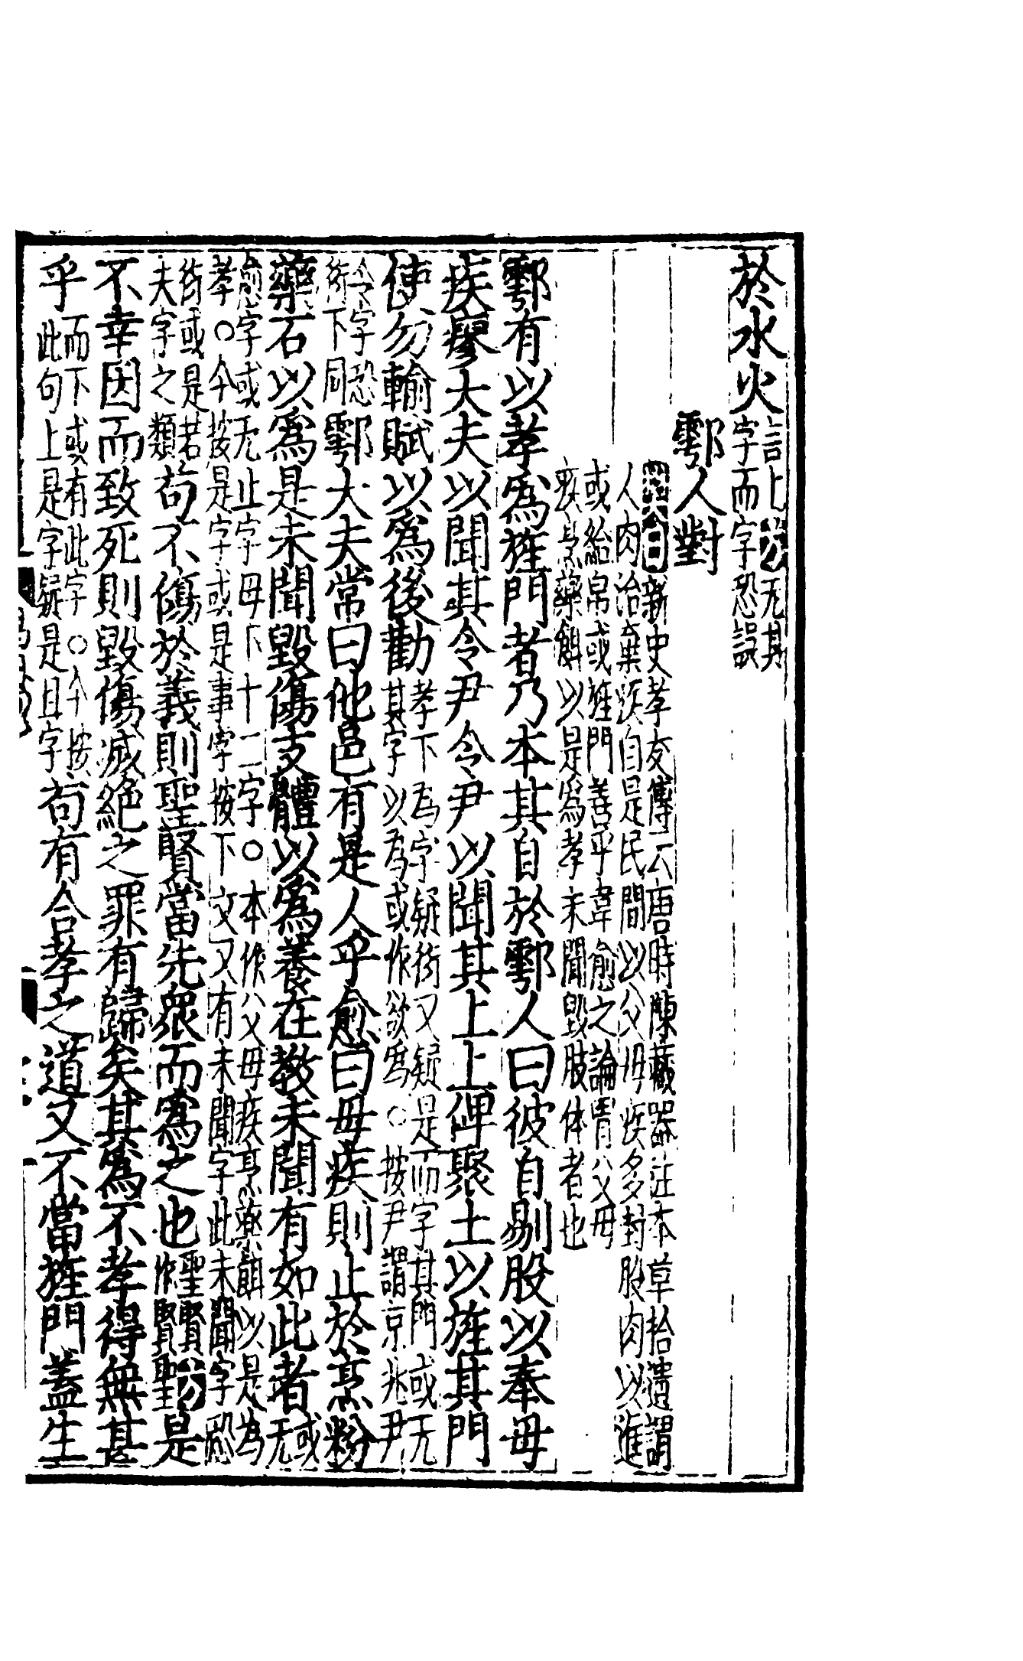 於水火言上公无其
字而字恐誤
鄠人對
新史孝友傳云唐時陳藏器注本草拾遺謂
人肉治羸疾自是民間以父母疾多刲股肉以進
或給帛或旌門善乎韋愈之論曰父母
疾烹藥餌以是爲孝未聞毀肢体者也
鄠有以孝爲旌門者乃本其自於鄠人曰彼自剔股以奉母
疾瘳大夫以聞其令尹令尹以聞其上上俾聚土以旌其門
使勿輸賦以爲後勸孝下爲字疑衍又疑是而字其門或无
其字以為或作欲爲○按尹謂京兆尹
令字恐
衍下同鄠大夫常曰他邑有是人乎愈曰母疾則止於烹粉
藥石以爲是未聞毀傷支體以爲養在教未聞有如此者或
无
愈字或无止字母下十二字○本作父母疾烹藥餌以是為
孝○今按是字或是事字按下文又有未聞字此未聞字恐
衍或是若
夫字之類苟不傷於義則聖賢當先衆而爲之也聖賢公
作賢聖是
不幸因而致死則毀傷滅絕之罪有歸矣其爲不孝得無甚
乎而下或有此字○今按
此句上是字疑是且字苟有合孝之道又不當旌門蓋生